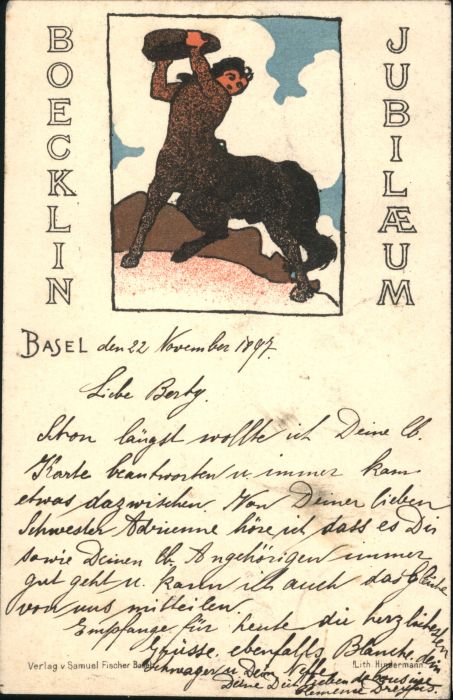 BOECKLIN
JUBILÆUM
BASEL den 22 November 1897.
Liebe Berty.
Schon längst wollte ich Deine lb.
Karte beantworten u. immer kam
etwas dazwischen. Von Deiner lieben
Schwester Adrienne höre ich dass es Dir
sowie Deinen lb. Angehörigen immer
gut geht u. kann ich auch das Gleiche
von uns mitteilen.
Empfange für heute die herzlichsten
Grüsse, ebenfalls Blanche, dein
Schwager u. Dein Neffe
Deine Dich liebende Cousine
Clemence Dreyfus.
Verlag v Samuel Fischer Basel
Lith. Hindermann